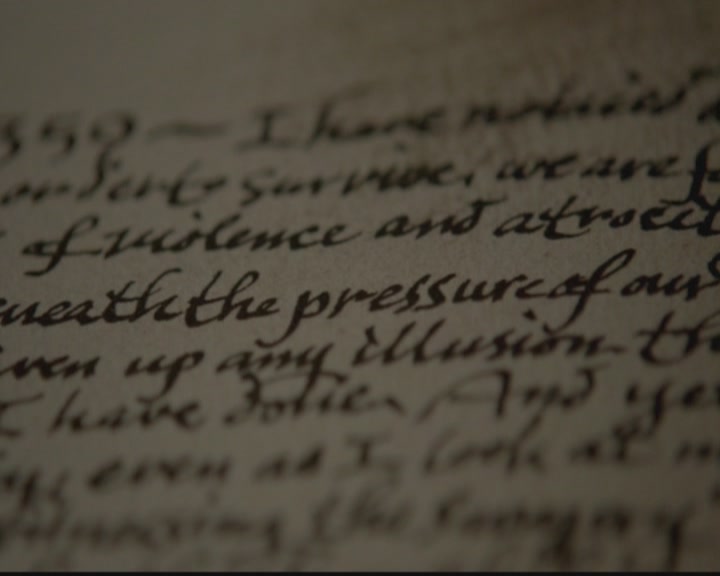 I have noticed
order to survive, we are
of violence and atrocit
eneath the pressure of our
iven up any illusion th
I have done. And yet
even as I look at
the